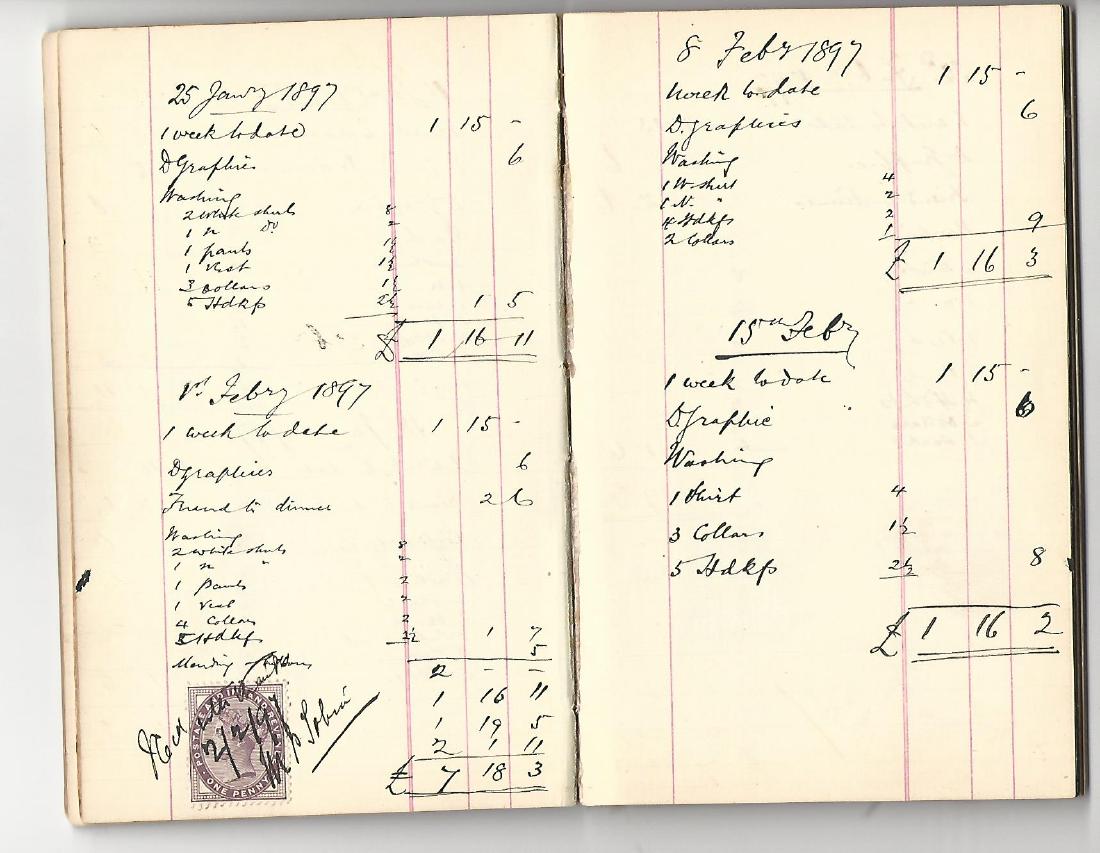 25 Jany 1897
1 week to date 1 15 -
D Graphics 6
Washing
2 White shirts 8
1 n do 2
1 pants 1½
1 Vest 1½
3 Collars 1½
5 Hdkfs 2½ 1 5
£ 1 16 11
1st Febry 1897
1 week to date 1 15 -
D graphics 6
Friend to dinner 2 6
Washing
2 White shirts 8
1 n " 2
1 pants 2
1 vest 2
4 Collars 2
5 Hdkfs 2½ 1 7
Mending 5
2 - -
1 16 11
1 19 5
2 1 11
£ 7 18 3
POSTAGE AND INLAND REVENUE
ONE PENNY
Recd with thanks
2/2/97
M B Tobin
8 Febry 1897
week to date 1 15 -
D. graphics 6
Washing
1 W. shirt 4
1 N. " 2
4 Hdkfs 2
2 Collars 1 9
£ 1 16 3
15th Febry
1 week to date 1 15 -
D Graphic 6
Washing
1 Shirt 4
3 Collars 1½
5 Hdkfs 2½ 8
£ 1 16 2